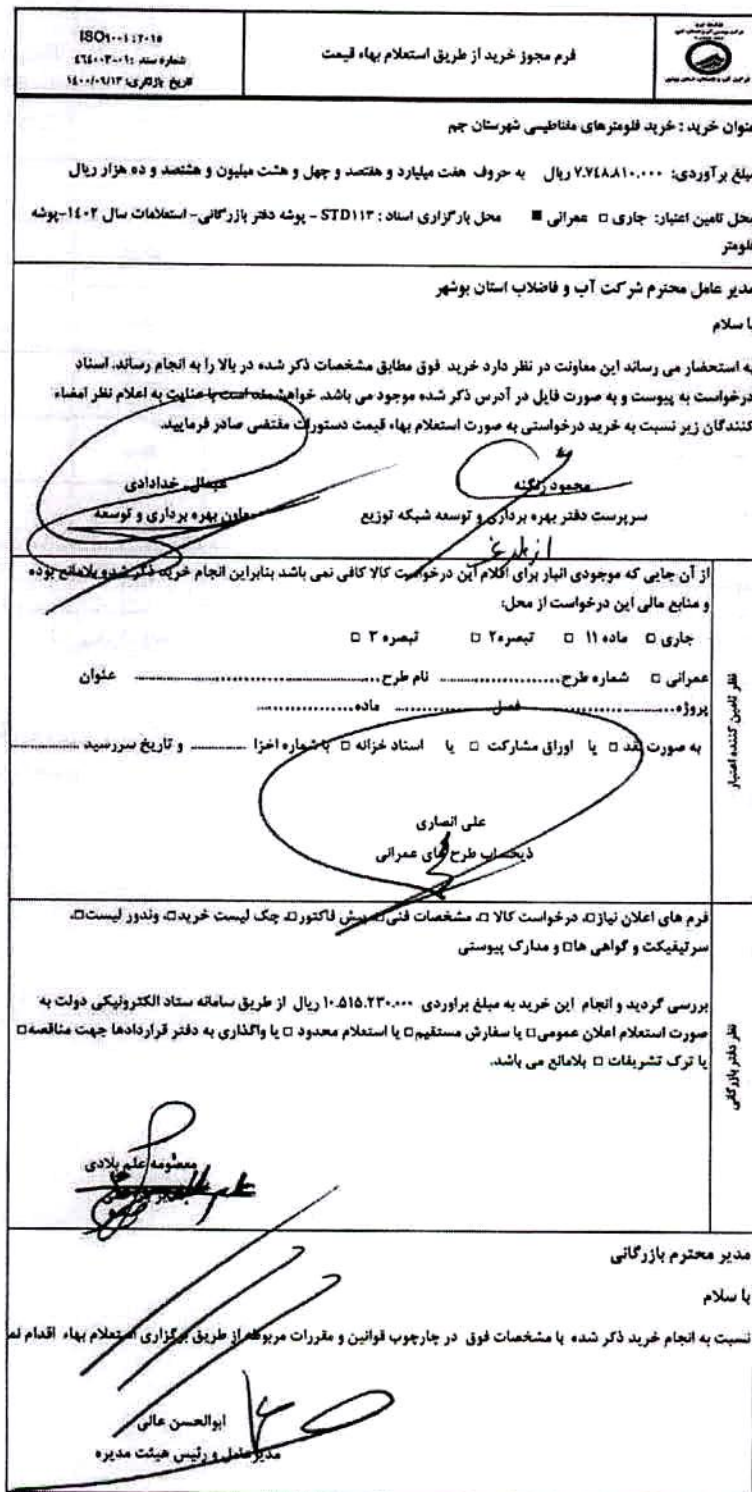 ISO۹۰۰۱:۲۰۱۵
شماره سند: ٤٦٤٠٠۳-۰۱
تاریخ بازنگری: ۱٤۰۰/۰۹/۱۳
فرم مجوز خرید از طریق استعلام بهاء قیمت
عنوان خرید : خرید فلومترهای مغناطیسی شهرستان جم
مبلغ برآوردی: ۷.۷٤۸.۸۱۰.۰۰۰ ریال به حروف هفت میلیارد و هفتصد و چهل و هشت میلیون و هشتصد و ده هزار ریال
محل تامین اعتبار: جاری □ عمرانی ■ محل بارگزاری اسناد : STD۱۱۳ - پوشه دفتر بازرگانی- استعلامات سال ۱٤۰۲-پوشه
فلومتر
مدیر عامل محترم شرکت آب و فاضلاب استان بوشهر
با سلام
به استحضار می رساند این معاونت در نظر دارد خرید فوق مطابق مشخصات ذکر شده در بالا را به انجام رساند. اسناد
درخواست به پیوست و به صورت فایل در آدرس ذکر شده موجود می باشد. خواهشمند است با عنایت به اعلام نظر امضاء
کنندگان زیر نسبت به خرید درخواستی به صورت استعلام بهاء قیمت دستورات مقتضی صادر فرمایید.
محمود زنگنه
خدادادی
سرپرست دفتر بهره برداری و توسعه شبکه توزیع
معاون بهره برداری و توسعه
نظر تامین کننده اعتبار
از آن جایی که موجودی انبار برای اقلام این درخواست کالا کافی نمی باشد بنابراین انجام خرید ذکر شده بلامانع بوده
و منابع مالی این درخواست از محل:
جاری □ ماده ۱۱ □ تبصره ۲ □ تبصره ۳ □
عمرانی □ شماره طرح.................. نام طرح........................ عنوان
پروژه.................. فصل .................. ماده..................
به صورت نقد □ یا اوراق مشارکت □ یا اسناد خزانه □ با شماره اخزا ........... و تاریخ سررسید ...............
علی انصاری
ذیحساب طرح های عمرانی
نظر دفتر بازرگانی
فرم های اعلان نیاز□، درخواست کالا □، مشخصات فنی□، پیش فاکتور□، چک لیست خرید□، وندور لیست□،
سرتیفیکت و گواهی ها□ و مدارک پیوستی
بررسی گردید و انجام این خرید به مبلغ براوردی ۱۰.۵۱۵.۲۳۰.۰۰۰ ریال از طریق سامانه ستاد الکترونیکی دولت به
صورت استعلام اعلان عمومی□ یا سفارش مستقیم□ یا استعلام محدود □ یا واگذاری به دفتر قراردادها جهت مناقصه□
یا ترک تشریفات □ بلامانع می باشد.
معصومه علم بلادی
مدیر محترم بازرگانی
با سلام
نسبت به انجام خرید ذکر شده با مشخصات فوق در چارچوب قوانین و مقررات مربوطه از طریق برگزاری استعلام بهاء اقدام نم
ابوالحسن عالی
مدیرعامل و رئیس هیئت مدیره